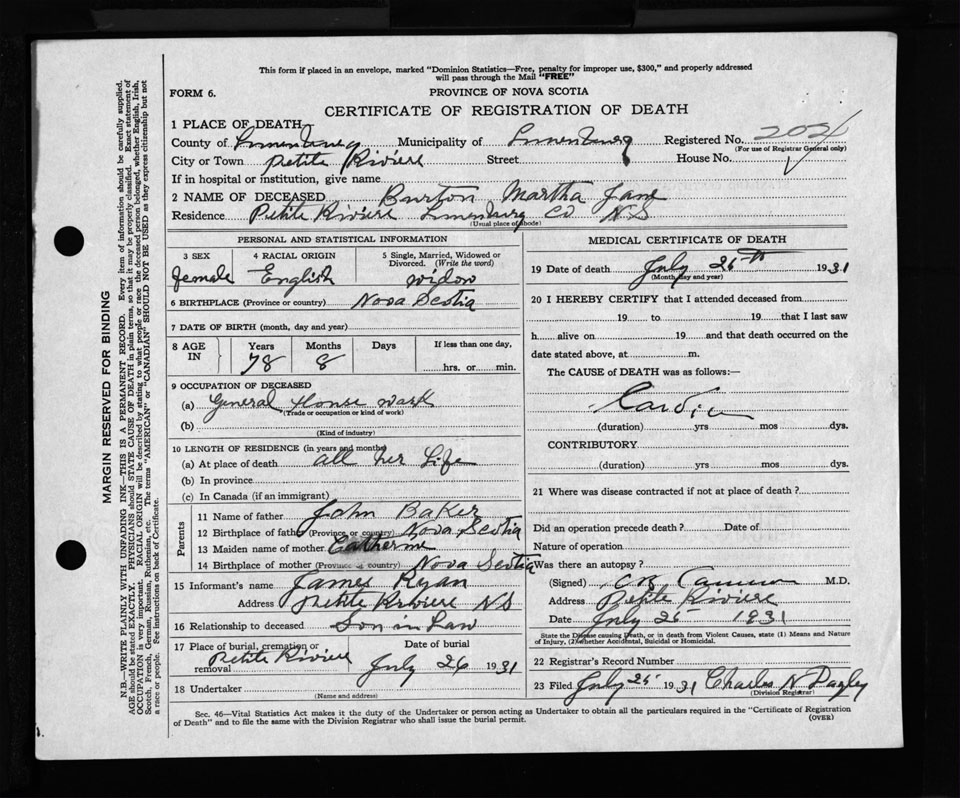 This form if placed in an envelope, marked "Dominion Statistics—Free, penalty for improper use, $300," and properly addressed
will pass through the Mail "FREE"
FORM 6.
PROVINCE OF NOVA SCOTIA
CERTIFICATE OF REGISTRATION OF DEATH
1 PLACE OF DEATH—
County of Lunenburg Municipality of Lunenburg Registered No. 204
(For use of Registrar General only)
City or Town Petite Riviere Street House No.
If in hospital or institution, give name
2 NAME OF DECEASED Burton Martha Jane
Residence Petite Riviere Lunenburg Co NS
(Usual place of abode)
PERSONAL AND STATISTICAL INFORMATION
3 SEX 4 RACIAL ORIGIN 5 Single, Married, Widowed or
Divorced. (Write the word)
female English widow
6 BIRTHPLACE (Province or country) Nova Scotia
7 DATE OF BIRTH (month, day and year)
8 AGE IN Years Months Days If less than one day,
78 8 hrs. or min.
9 OCCUPATION OF DECEASED
(a) General House Work
(Trade or occupation or kind of work)
(b)
(Kind of industry)
10 LENGTH OF RESIDENCE (in years and months)
(a) At place of death all her Life
(b) In province
(c) In Canada (if an immigrant)
Parents
11 Name of father John Baker
12 Birthplace of father (Province or country) Nova Scotia
13 Maiden name of mother Catherine
14 Birthplace of mother (Province or country) Nova Scotia
15 Informant's name James Ryan
Address Petite Riviere NS
16 Relationship to deceased Son in Law
17 Place of burial, cremation or removal Date of burial
Petite Riviere July 26 1931
18 Undertaker
(Name and address)
MEDICAL CERTIFICATE OF DEATH
19 Date of death July 25th 1931
(Month, day and year)
20 I HEREBY CERTIFY that I attended deceased from
19 to 19 that I last saw
h alive on 19 and that death occurred on the
date stated above, at m.
The CAUSE of DEATH was as follows:—
Cardiac
(duration) yrs mos dys.
CONTRIBUTORY
(duration) yrs. mos. dys.
21 Where was disease contracted if not at place of death?
Did an operation precede death? Date of
Nature of operation
Was there an autopsy?
(Signed) Cameron M.D.
Address Petite Riviere
Date July 25 1931
State the Disease causing Death, or in death from Violent Causes, state (1) Means and Nature
of Injury, (2) whether Accidental, Suicidal or Homicidal.
22 Registrar's Record Number
23 Filed July 25 1931 Charles N Dagley
(Division Registrar)
Sec. 46—Vital Statistics Act makes it the duty of the Undertaker or person acting as Undertaker to obtain all the particulars required in the "Certificate of Registration
of Death" and to file the same with the Division Registrar who shall issue the burial permit.
(OVER)
MARGIN RESERVED FOR BINDING
N.B.—WRITE PLAINLY WITH UNFADING INK—THIS IS A PERMANENT RECORD. Every item of information should be carefully supplied.
AGE should be stated EXACTLY. PHYSICIANS should STATE CAUSE OF DEATH in plain terms, so that it may be properly classified. Exact statement of
OCCUPATION is very important. RACIAL ORIGIN will be described by stating to what people or race the deceased person belonged, whether English, Irish,
Scotch, French, German, Russian, Ruthenian, etc. The terms "AMERICAN" or "CANADIAN" SHOULD NOT BE USED as they express citizenship but not
a race or people. See instructions on back of Certificate.